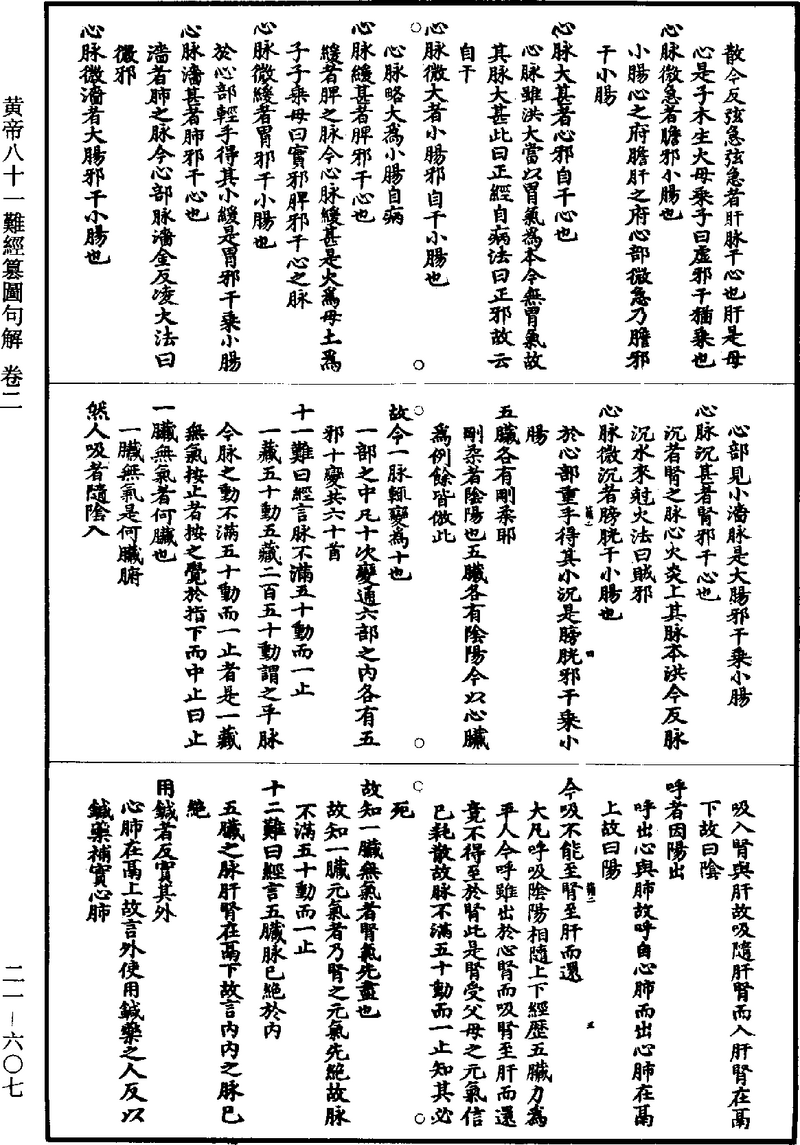 黃帝八十一難經纂圖句解 卷二
二一－六〇七
散今反弦急弦急者肝脉干心也肝是母
心是子木生火母乘子曰虛邪干猶乘也
心脉微急者膽邪干小腸也
小腸心之府膽肝之府心部微急乃膽邪
干小腸
心脉大甚者心邪自干心也
心脉雖洪大當以胃氣爲本今無胃氣故
其脉大甚此曰正經自病法曰正邪故云
自干
心脉微大者小腸邪自干小腸也
心脉略大爲小腸自病
心脉緩甚者脾邪干心也
緩者脾之脉今心脉緩甚是火爲母土爲
子子乘母曰實邪脾邪干心之脉
心脉微緩者胃邪干小腸也
於心部輕手得其小緩是胃邪干乘小腸
心脉濇甚者肺邪干心也
濇者肺之脉今心部脉濇金反凌火法曰
微邪
心脉微濇者大腸邪干小腸也
心部見小濇脉是大腸邪干乘小腸
心脉沉甚者腎邪干心也
沉者腎之脉心火炎上其脉本洪今反脉
沉水來尅火法曰賊邪
心脉微沉者膀胱干小腸也
於心部重手得其小沉是膀胱邪干乘小
腸
五臟各有剛柔耶
剛柔者陰陽也五臟各有陰陽今以心臟
爲例餘皆倣此
故令一脉輒變爲十也
一部之中凡十次變通六部之內各有五
邪十變共六十首
十一難曰經言脉不滿五十動而一止
一藏五十動五藏二百五十動謂之平脉
今脉之動不滿五十動而一止者是一藏
無氣按止者按之覺於指下而中止曰止
一臟無氣者何臟也
一臟無氣是何臟腑
然人吸者隨陰入
吸入腎與肝故吸隨肝腎而入肝腎在鬲
下故曰陰
呼者因陽出
呼出心與肺故呼自心肺而出心肺在鬲
上故曰陽
今吸不能至腎至肝而還
大凡呼吸陰陽相隨上下經歷五臟力爲
平人今呼雖出於心腎而吸腎至肝而還
竟不得至於腎此是腎受父母之元氣信
已耗散故脉不滿五十動而一止知其必
死
故知一臟無氣者腎氣先盡也
故知一臟元氣者乃腎之元氣先絕故脉
不滿五十動而一止
十二難曰經言五臟脉已絕於內
五臟之脉肝腎在鬲下故言內內之脉已
絕
用鍼者反實其外
心肺在鬲上故言外使用鍼藥之人反以
鍼藥補實心肺